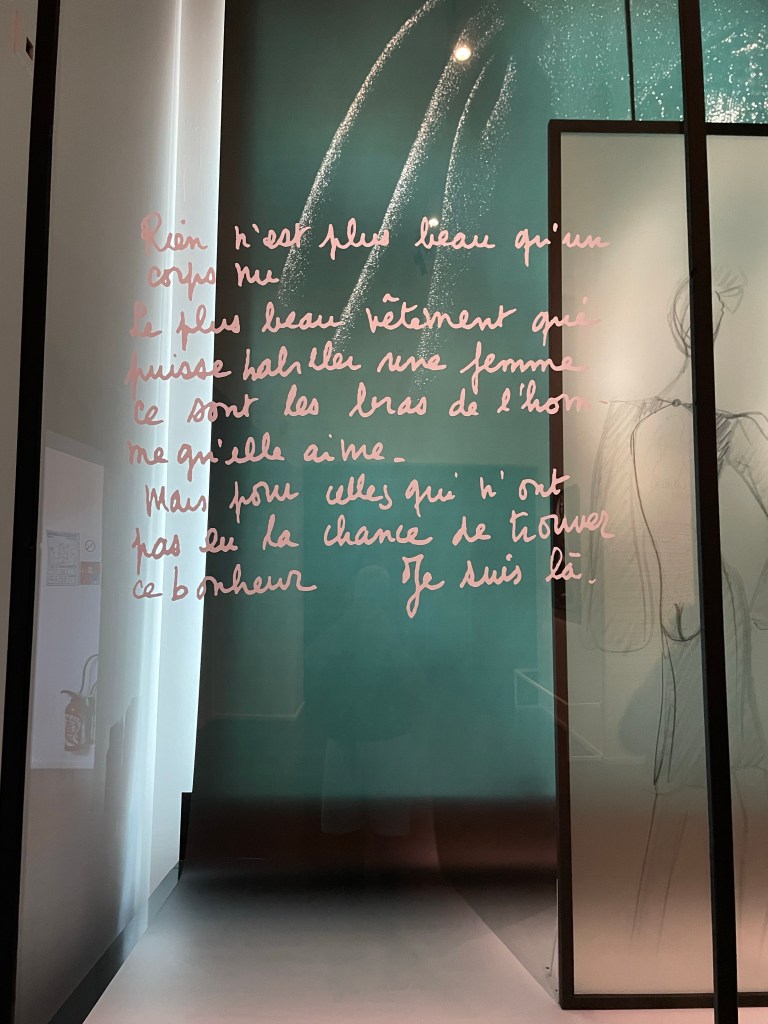 Rien n'est plus beau qu'un
corps nu
Le plus beau vêtement qui
puisse habiller une femme
ce sont les bras de l'hom-
me qu'elle aime_
Mais pour celles qui n'ont
pas eu la chance de trouver
ce bonheur Je suis là.